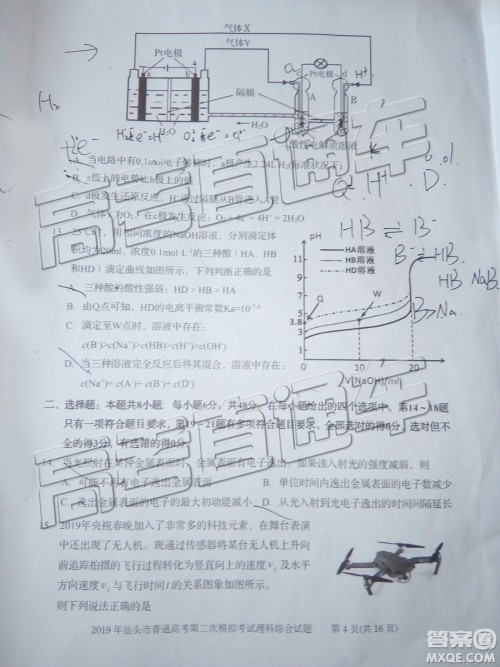 气体X
气体Y
Pt电极
Pt电极
隔膜
H₂O
酸性电解质溶液
A. 当电路中有0.1mol电子转移时，a极产生2.24L H₂(标准状况下)
C. d极发生还原反应，H⁺通过隔膜从B管进入A管
D. 气体Y为O₂，在c极发生反应：O₂ + 4e⁻ + 4H⁺ = 2H₂O
13. 25℃时，用相同浓度的NaOH溶液，分别滴定体
积均为20ml、浓度0.1mol·L⁻¹的三种酸（HA、HB
和HD）滴定曲线如图所示，下列判断正确的是
A. 三种酸的酸性强弱：HD > HB > HA
B. 由Q点可知，HD的电离平衡常数Ka=10⁻⁷·⁶
C. 滴定至W点时，溶液中存在：
c(B⁻)>c(Na⁺)>c(HB)>c(H⁺)>c(OH⁻)
D. 当三种溶液完全反应后将其混合，溶液中存在：
c(Na⁺)= c(A⁻)+ c(B⁻)+ c(D⁻)
pH
HA溶液
HB溶液
HD溶液
11
9
7
5
3.8
3
1
Q
W
0 10 20
V(NaOH)/ml
二、选择题：本题共8小题，每小题6分，共48分。在每小题给出的四个选项中，第14～18题
只有一项符合题目要求，第19～21题有多项符合题目要求。全部选对的得6分，选对但不
全的得3分，有选错的得0分。
14. 当光照射在某种金属表面时，金属表面有电子逸出。如果该入射光的强度减弱，则
A. 可能不再有电子逸出金属表面 B. 单位时间内逸出金属表面的电子数减少
C. 逸出金属表面的电子的最大初动能减小 D. 从光入射到光电子逸出的时间间隔延长
15. 2019年央视春晚加入了非常多的科技元素，在舞台表演
中还出现了无人机。现通过传感器将某台无人机上升向
前追踪拍摄的飞行过程转化为竖直向上的速度vᵧ及水平
方向速度vₓ与飞行时间t的关系图象如图所示。
则下列说法正确的是
2019年汕头市普通高考第二次模拟考试理科综合试题 第4页(共16页)
高考直通车
高考直通车
答案圈
MXQE.COM